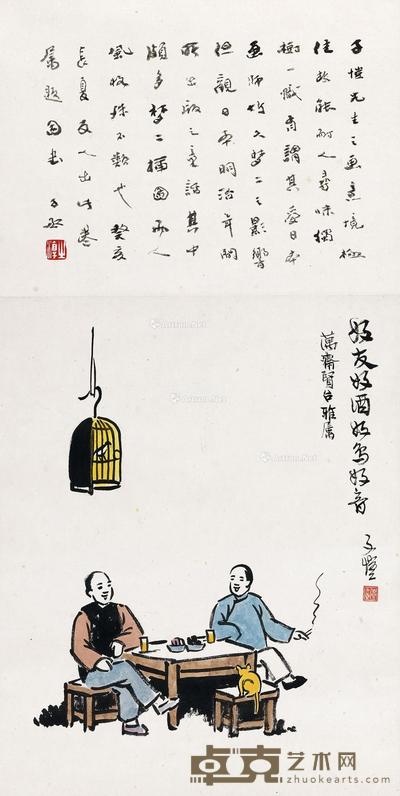 子愷先生之画意境極
佳故能耐人尋味獨
樹一幟有謂其受日本
画師竹久夢二之影響
但觀日本明治年間
所出版之童話其中
頗多夢二插圖而人
風格殊不類也癸亥
長夏友人出此卷
屬題圖書
好友好酒好鳥好音
萬齋賢台雅屬
子愷
Artron.Net
卓克艺术网
www.zhuokearts.com